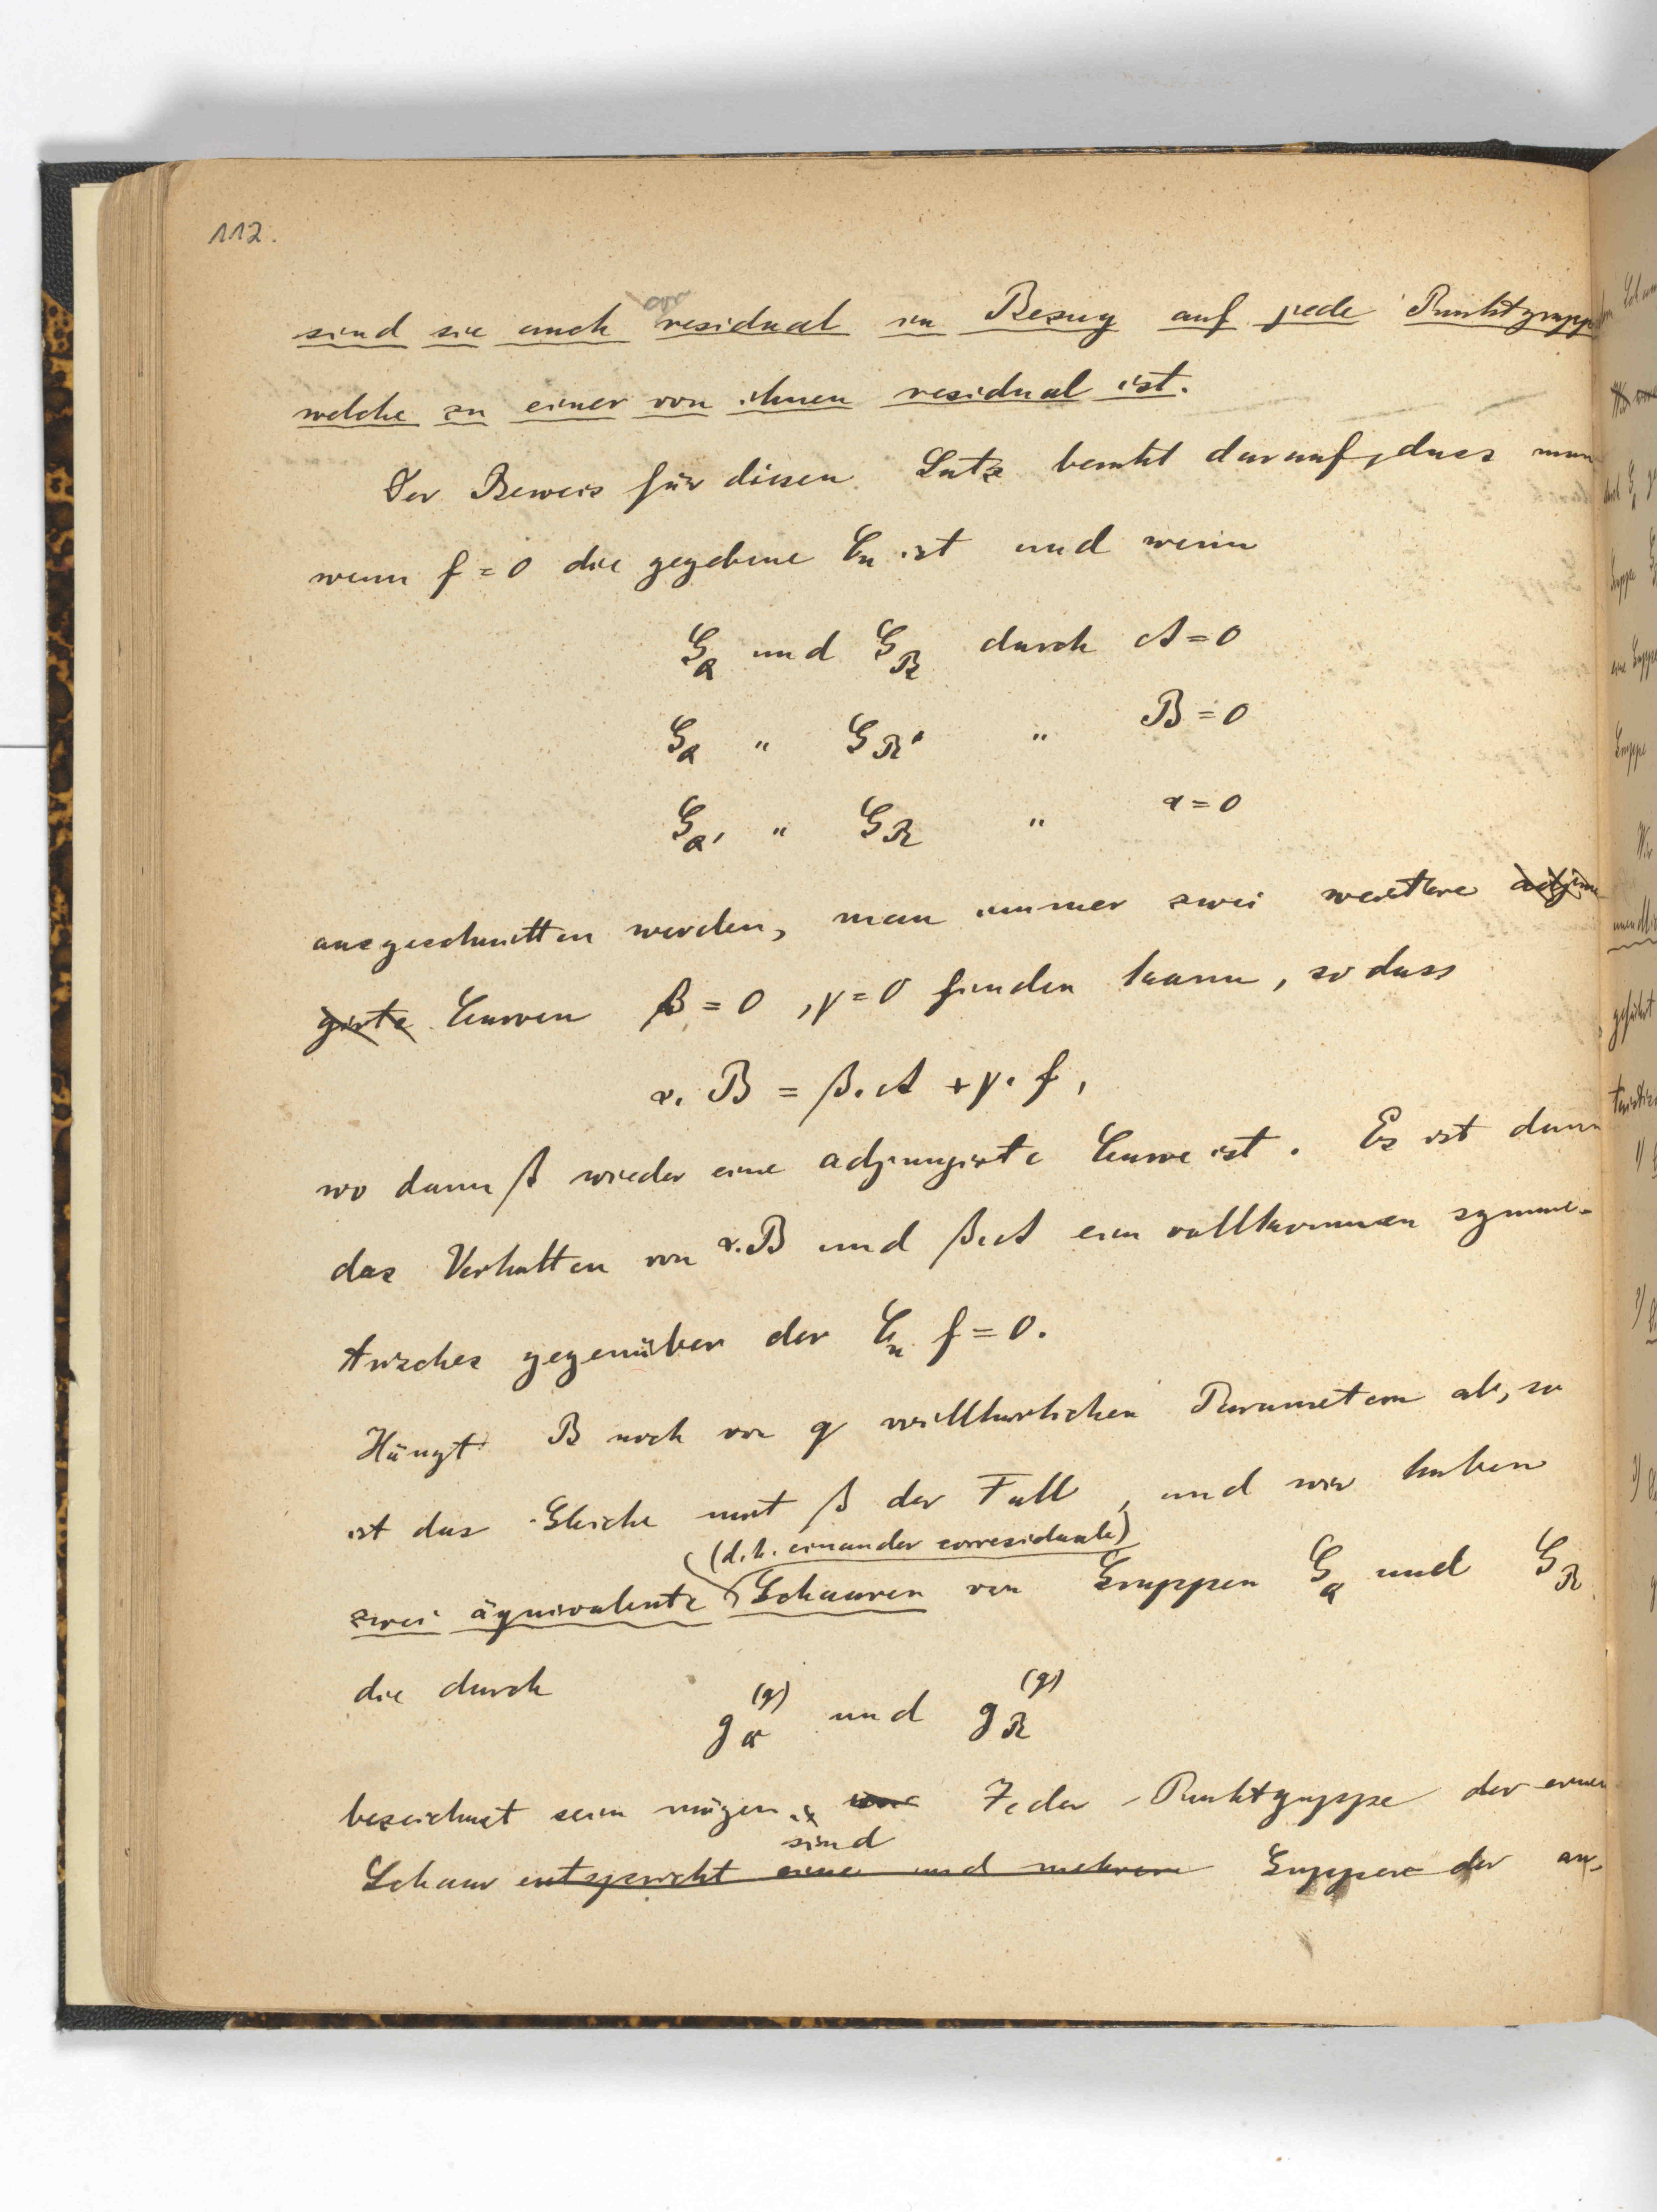 112.
sind sie auch corresidual in Bezug auf jede Punktgruppe
welche zu einer von ihnen residual ist.
Der Beweis für diesen Satz beruht darauf, dass man
wenn f = 0 die gegebene Cn ist und wenn
G_Q und G_R durch A = 0
G_Q " G_R' " B = 0
G_Q' " G_R " α = 0
ausgeschnitten werden, man immer zwei weitere adjun
girte Curven β = 0, γ = 0 finden kann, so dass
α. B = β. A + γ. f,
wo dann β wieder eine adjungirte Curve ist. Es ist dann
das Verhalten von α.B und β.A ein vollkommen symme-
trisches gegenüber der Cn f = 0.
Hängt B noch von q willkürlichen Parametern ab, so
ist das Gleiche mit β der Fall, und wir haben
(d. h. einander corresiduale)
zwei äquivalente Schaaren von Gruppen G_Q und G_R
die durch
g_Q^(q) und g_R^(q)
bezeichnet sein mögen. Jeder Punktgruppe der einen
sind
Schaar entspricht eine und mehrere Gruppen der an-